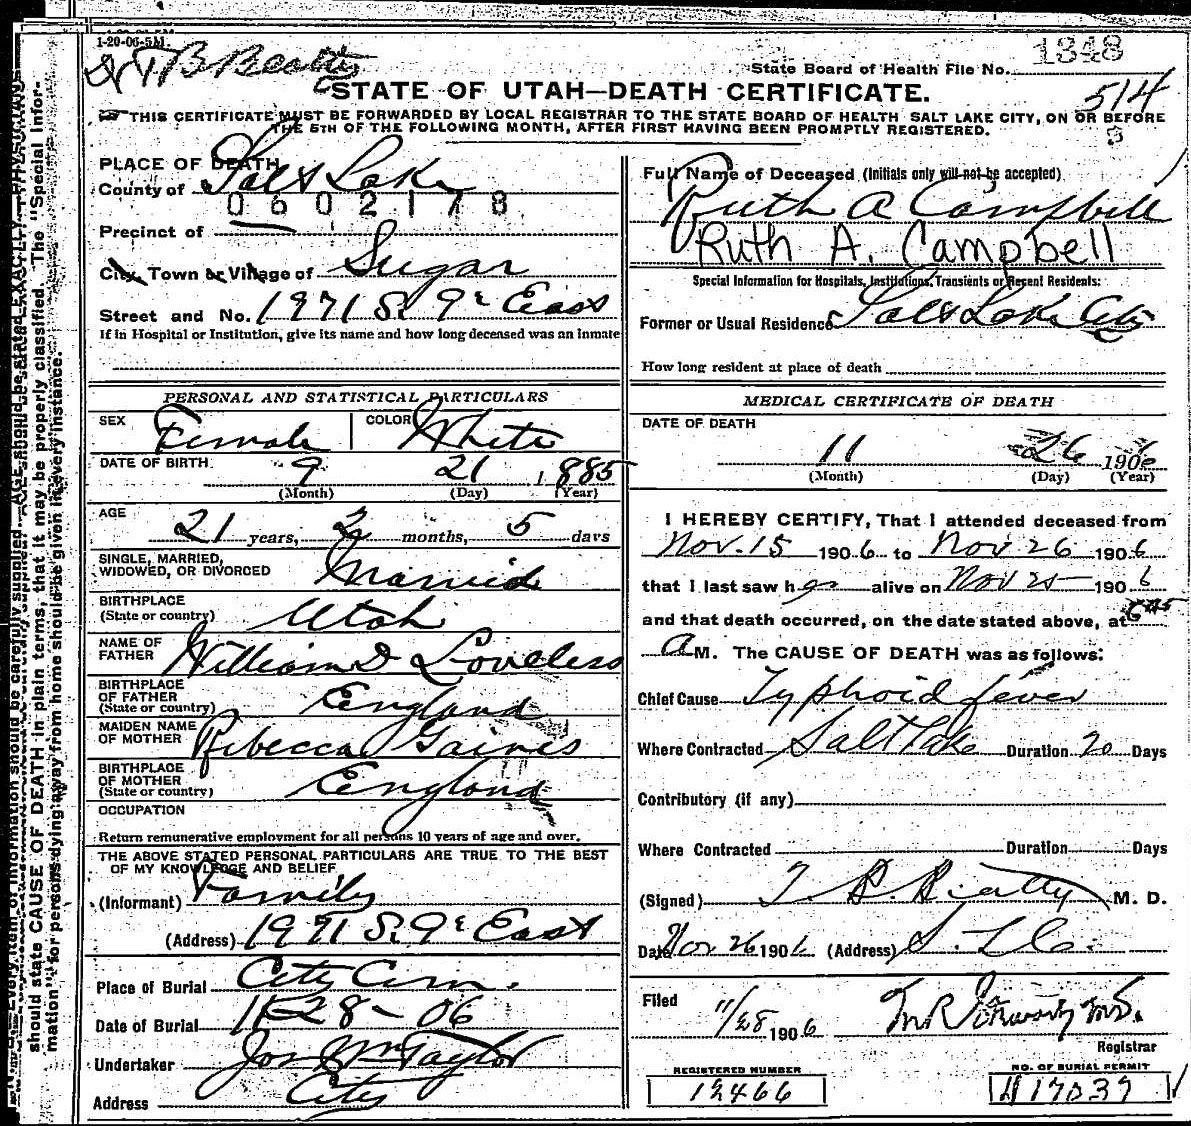 1-20-06-5M.
T B Beatty
1348
State Board of Health File No.
514
STATE OF UTAH—DEATH CERTIFICATE.
THIS CERTIFICATE MUST BE FORWARDED BY LOCAL REGISTRAR TO THE STATE BOARD OF HEALTH SALT LAKE CITY, ON OR BEFORE
THE 5TH OF THE FOLLOWING MONTH, AFTER FIRST HAVING BEEN PROMPTLY REGISTERED.
3
PLACE OF DEATH
County of Salt Lake
0602178
Precinct of
City, Town or Village of Sugar
Street and No. 1971 S. 9th East
If in Hospital or Institution, give its name and how long deceased was an inmate
Full Name of Deceased (Initials only will not be accepted)
Ruth A Campbell
Ruth A. Campbell
Special Information for Hospitals, Institutions, Transients or Recent Residents:
Former or Usual Residence Salt Lake City
How long resident at place of death
PERSONAL AND STATISTICAL PARTICULARS
SEX Female COLOR White
DATE OF BIRTH 9 21 1885
(Month) (Day) (Year)
AGE
21 years, 2 months, 5 days
SINGLE, MARRIED,
WIDOWED, OR DIVORCED Married
BIRTHPLACE
(State or country) Utah
NAME OF
FATHER William D Loveless
BIRTHPLACE
OF FATHER
(State or country) England
MAIDEN NAME
OF MOTHER Ribecca Gaines
BIRTHPLACE
OF MOTHER
(State or country) England
OCCUPATION
Return remunerative employment for all persons 10 years of age and over.
THE ABOVE STATED PERSONAL PARTICULARS ARE TRUE TO THE BEST
OF MY KNOWLEDGE AND BELIEF
(Informant) Family
(Address) 1971 S. 9th East
Place of Burial City Cem.
Date of Burial 11-28-06
Undertaker Jos Wm Taylor
Address City
MEDICAL CERTIFICATE OF DEATH
DATE OF DEATH
11 26 1906
(Month) (Day) (Year)
I HEREBY CERTIFY, That I attended deceased from
Nov. 15 1906 to Nov 26 1906
that I last saw her alive on Nov 25 1906
and that death occurred, on the date stated above, at 6 45
a M. The CAUSE OF DEATH was as follows:
Chief Cause Typhoid fever
Where Contracted Salt Lake Duration 20 Days
Contributory (if any)
Where Contracted Duration Days
(Signed) T. B. Beatty M. D.
Date Nov 26 1906 (Address) S. L. C.
Filed
11/28 1906 M.D.
Registrar
REGISTERED NUMBER
12466
NO. OF BURIAL PERMIT
H17039
Every item of information should be carefully supplied. AGE should be stated EXACTLY. PHYSICIANS
should state CAUSE OF DEATH in plain terms, that it may be properly classified. The "Special Infor-
mation" for persons dying away from home should be given in every instance.